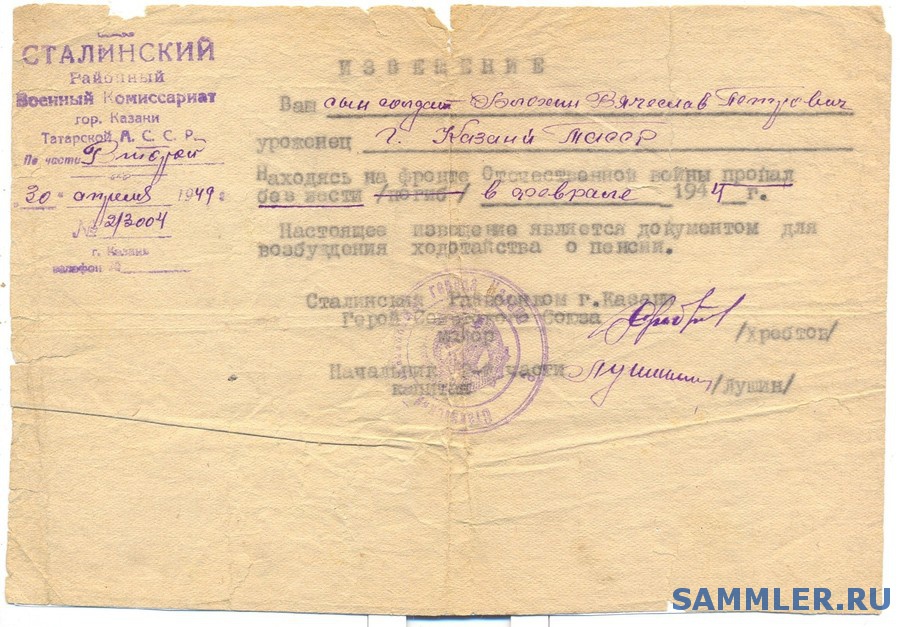 СТАЛИНСКИЙ
Районный
Военный Комиссариат
гор. Казани
Татарской А. С. С. Р.
По части Второй
"30" апреля 1949 г.
№ 2/3004
г. Казань
телефон №
ИЗВЕЩЕНИЕ
Ваш сын солдат Вячеслав Петрович
уроженец г. Казани ТАССР
Находясь на фронте Отечественной войны пропал
без вести /погиб/ в феврале 1944 г.
Настоящее извещение является документом для
возбуждения ходотайства о пенсии.
Сталинский Райвоенком г.Казани
Герой Советского Союза
майор /Хребтов/
Начальник 2-й части
капитан /Лушин/
SAMMLER.RU